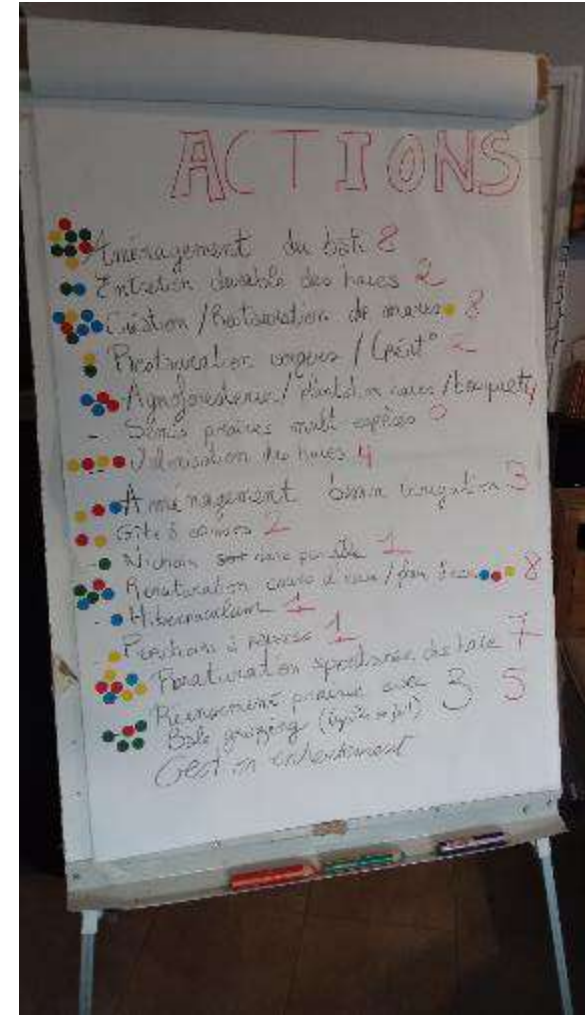 ACTIONS
Aménagement du bâti 8
Entretien durable des haies 2
Création / Restauration de mares 8
Restauration / Créat°
Agroforesterie / plantation haies / bosquets 4
- Semis prairies multi espèces 0
Valorisation des haies 4
- Aménagement bassin irrigation 3
Gîte à 2
- Nichoir sur 1
Renaturation cours d'eau / 8
- Hibernaculum 1
Perchoir à rapaces 1
Restauration spontanée de haie 7
prairie avec 3 5
Bale grazing
Gestion enherbement